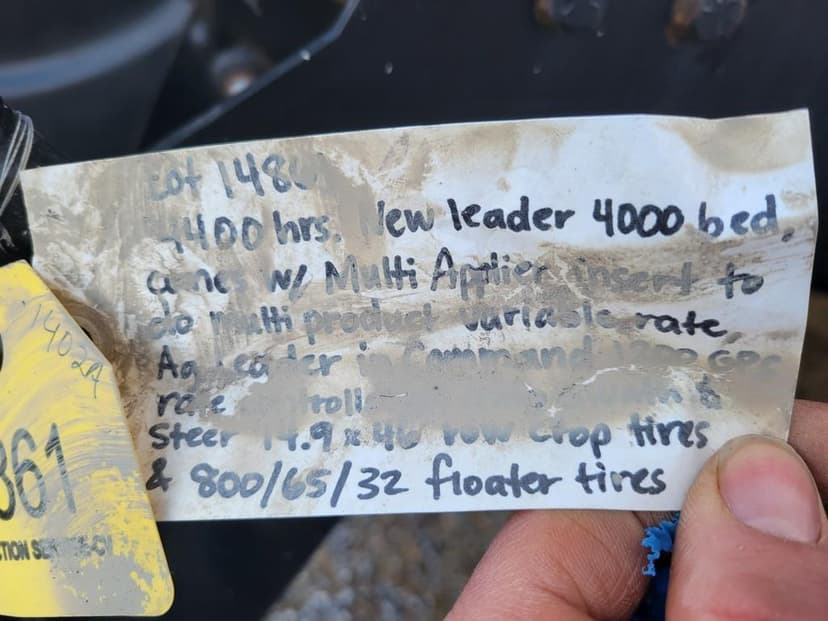 Lot 1486
4400 hrs. New leader 4000 bed,
comes w/ Multi Applier insert to
do multi product variable rate,
Ag Leader in Command GPS
rate
Steer 14.9 x 46 row crop tires
& 800/65/32 floater tires
1402A
361